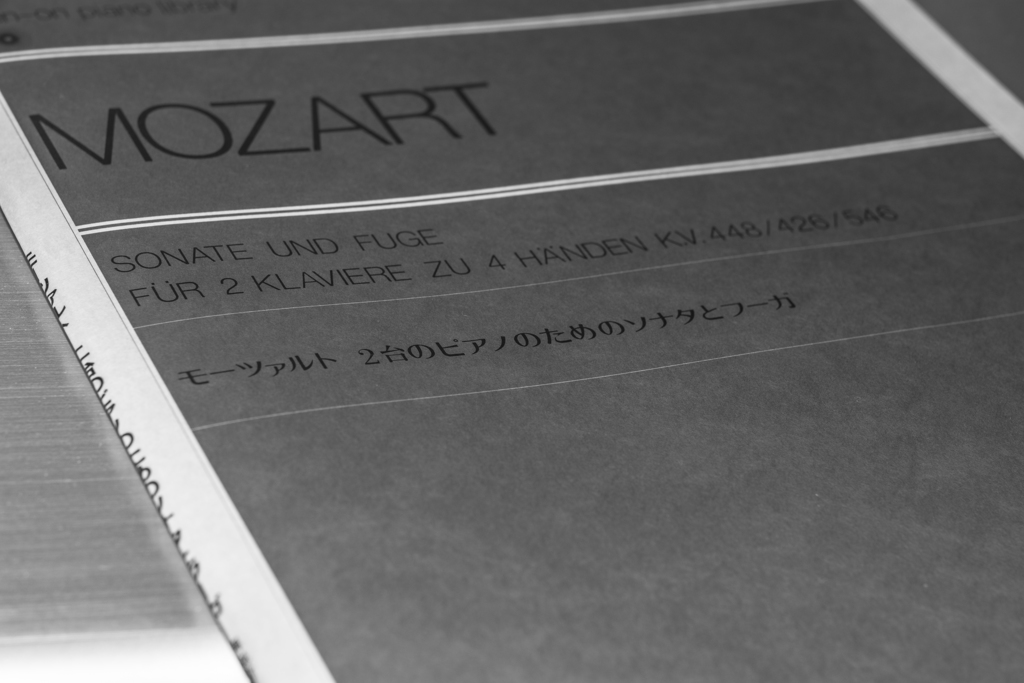 piano library
MOZART
SONATE UND FUGE
FÜR 2 KLAVIERE ZU 4 HÄNDEN KV.448/426/546
モーツァルト 2台のピアノのためのソナタとフーガ